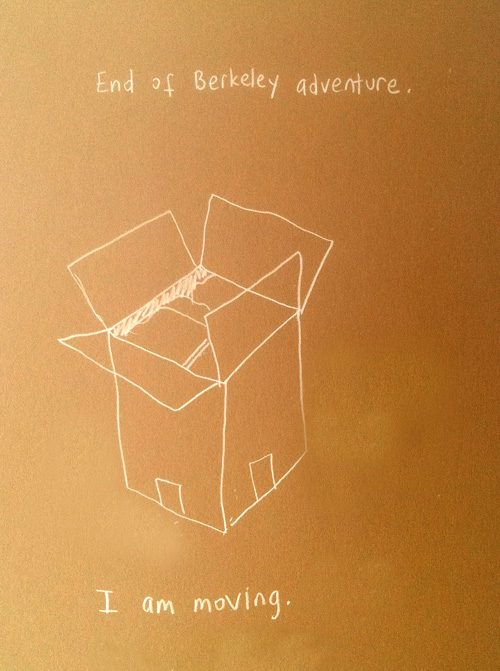 End of Berkeley adventure.
I am moving.